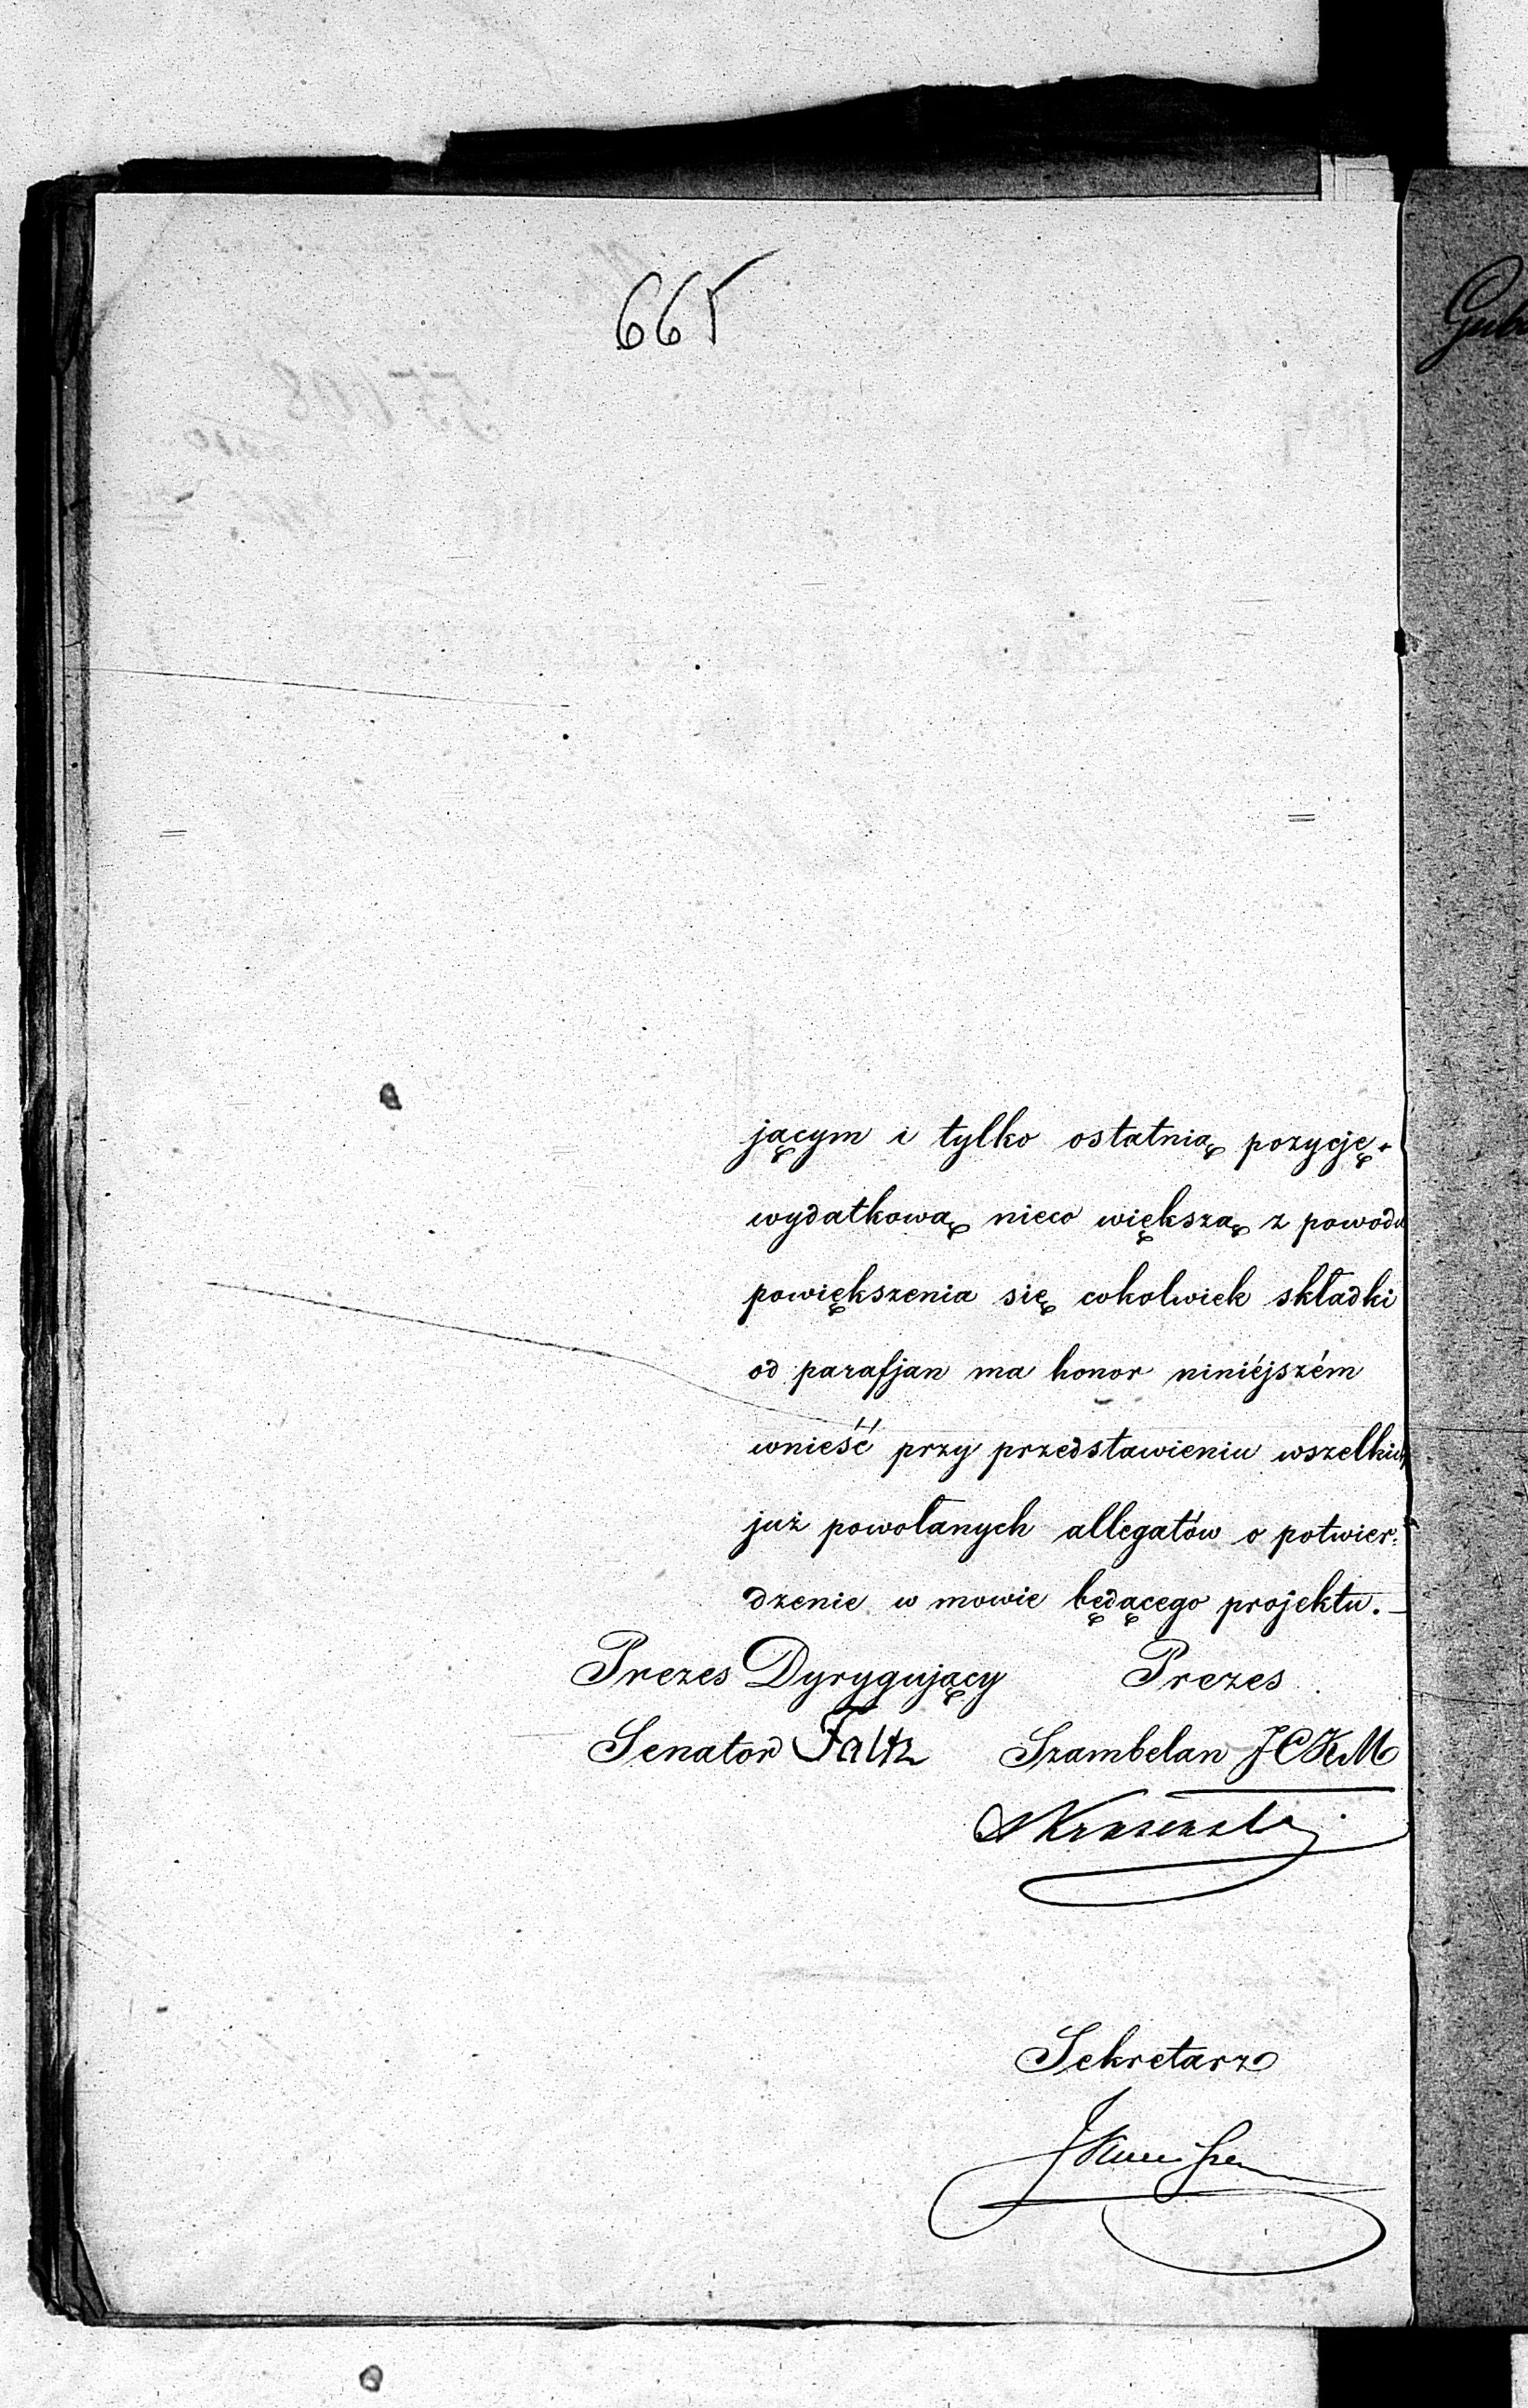 665
jącym i tylko ostatnią pozycję
wydatkową nieco większą z powodu
powiększenia się cokolwiek składki
od parafjan ma honor niniéjszém
wnieść przy przedstawieniu wszelkich
już powołanych allegatów o potwier=
dzenie w mowie będącego projektu.
Prezes Dyrygujący Prezes
Senator Faltz Szambelan JCKM
Sekretarz